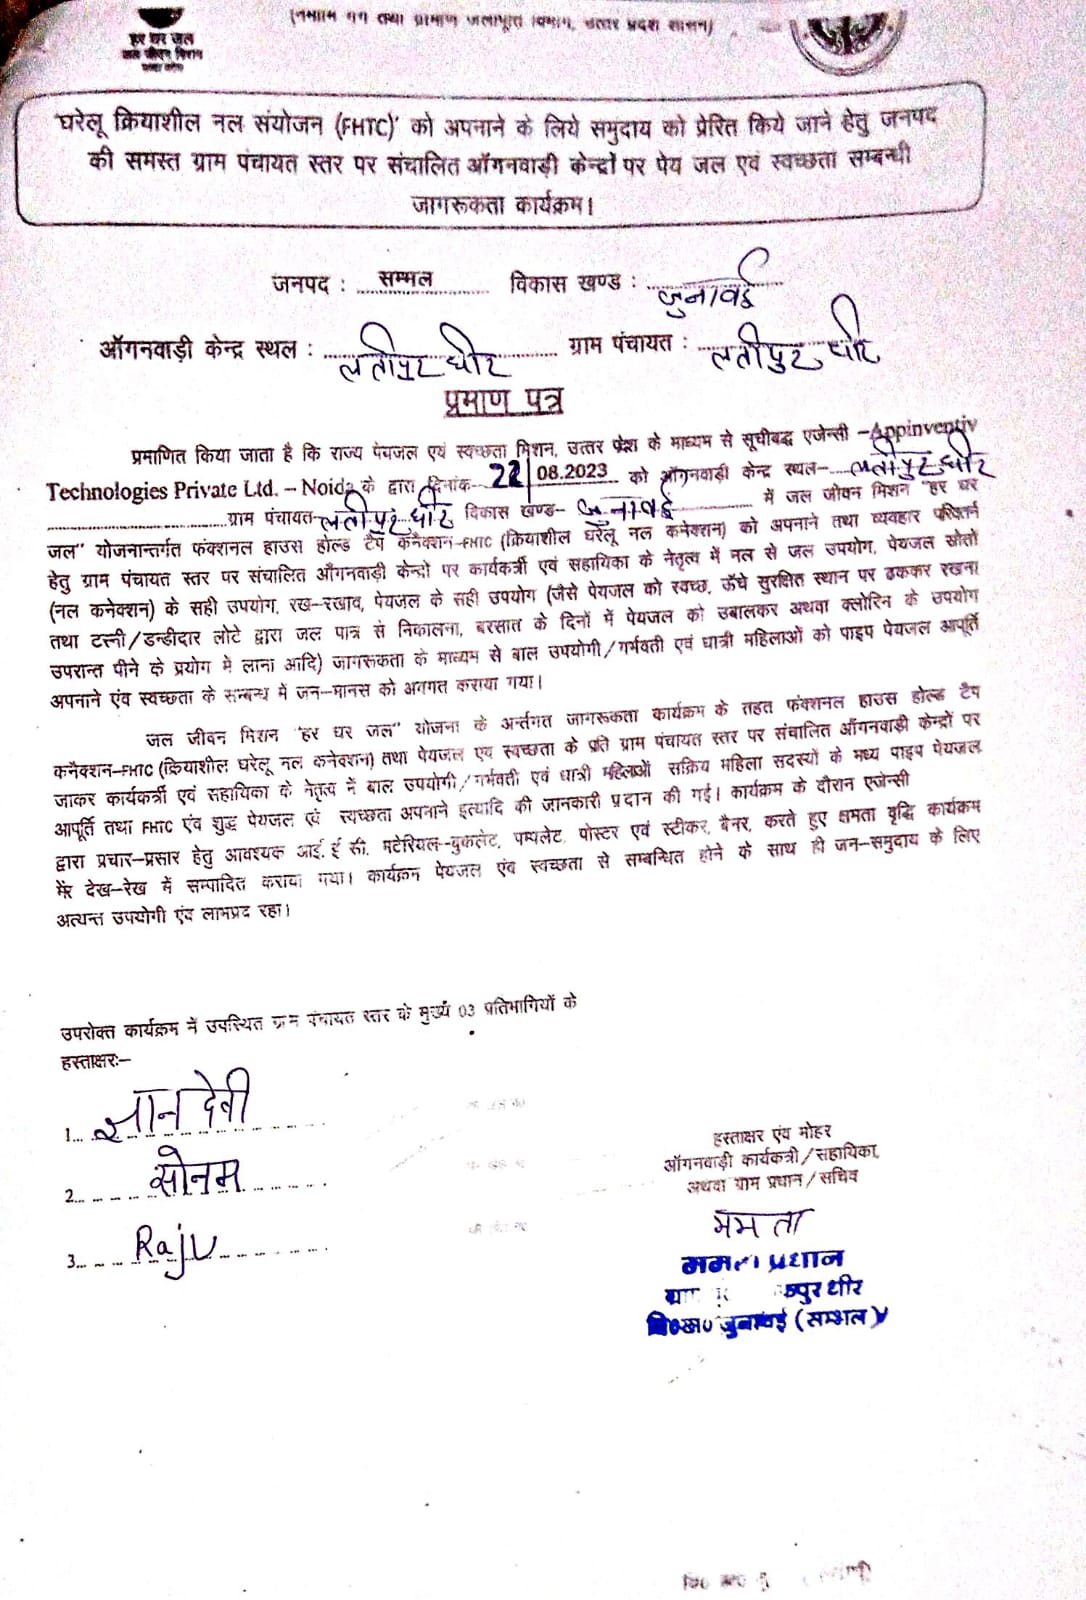 हर घर जल
जल जीवन मिशन
(नमामि गंगे तथा ग्रामीण जलापूर्ति विभाग, उत्तर प्रदेश शासन)
'घरेलू क्रियाशील नल संयोजन (FHTC)' को अपनाने के लिये समुदाय को प्रेरित किये जाने हेतु जनपद
की समस्त ग्राम पंचायत स्तर पर संचालित ऑगनवाड़ी केन्द्रों पर पेय जल एवं स्वच्छता सम्बन्धी
जागरूकता कार्यक्रम।
जनपद : सम्भल विकास खण्ड : जुनावई
ऑगनवाड़ी केन्द्र स्थल : लतीपुर धीर ग्राम पंचायत : लतीपुर धीर
प्रमाण पत्र
प्रमाणित किया जाता है कि राज्य पेयजल एवं स्वच्छता मिशन, उत्तर प्रदेश के माध्यम से सूचीबद्ध एजेन्सी –Appinventiv
Technologies Private Ltd. – Noida के द्वारा दिनांक- 22/08.2023 को ऑगनवाड़ी केन्द्र स्थल- लतीपुर धीर
ग्राम पंचायत- लतीपुर धीर विकास खण्ड- जुनावई में जल जीवन मिशन "हर घर
जल" योजनान्तर्गत फंक्शनल हाउस होल्ड टैप कनैक्शन-FHTC (क्रियाशील घरेलू नल कनेक्शन) को अपनाने तथा व्यवहार परिवर्तन
हेतु ग्राम पंचायत स्तर पर संचालित ऑगनवाड़ी केन्दों पर कार्यकर्त्री एवं सहायिका के नेतृत्व में नल से जल उपयोग, पेयजल स्रोतों
(नल कनेक्शन) के सही उपयोग, रख-रखाव, पेयजल के सही उपयोग (जैसे पेयजल को स्वच्छ, ऊँचे सुरक्षित स्थान पर ढककर रखना
तथा टत्नी/डन्डीदार लोटे द्वारा जल पात्र से निकालना, बरसात के दिनों में पेयजल को उबालकर अथवा क्लोरिन के उपयोग
उपरान्त पीने के प्रयोग में लाना आदि) जागरूकता के माध्यम से बाल उपयोगी/गर्भवती एवं धात्री महिलाओं को पाइप पेयजल आपूर्ति
अपनाने एंव स्वच्छता के सम्बन्ध में जन-मानस को अवगत कराया गया।
जल जीवन मिशन "हर घर जल" योजना के अर्न्तगत जागरूकता कार्यक्रम के तहत फंक्शनल हाउस होल्ड टैप
कनैक्शन-FHTC (क्रियाशील घरेलू नल कनेक्शन) तथा पेयजल एंव स्वच्छता के प्रति ग्राम पंचायत स्तर पर संचालित ऑगनवाड़ी केन्द्रों पर
जाकर कार्यकर्त्री एवं सहायिका के नेतृत्व में बाल उपयोगी/गर्भवती एवं धात्री महिलाओं सक्रिय महिला सदस्यों के मध्य पाइप पेयजल
आपूर्ति तथा FHTC एंव शुद्ध पेयजल एवं स्वच्छता अपनाने इत्यादि की जानकारी प्रदान की गई। कार्यक्रम के दौरान एजेन्सी
द्वारा प्रचार-प्रसार हेतु आवश्यक आई. ई सी. मटेरियल-बुकलेट, पम्पलेट, पोस्टर एवं स्टीकर, बैनर, करते हुए क्षमता वृद्धि कार्यक्रम
मेंर देख-रेख में सम्पादित कराया गया। कार्यक्रम पेयजल एंव स्वच्छता से सम्बन्धित होने के साथ ही जन-समुदाय के लिए
अत्यन्त उपयोगी एंव लाभप्रद रहा।
उपरोक्त कार्यक्रम में उपस्थित ग्राम पंचायत स्तर के मुख्य 03 प्रतिभागियों के
हस्ताक्षरः-
1. ज्ञान देवी
2. सोनम
3. Raju
हस्ताक्षर एंव मोहर
ऑगनवाड़ी कार्यकत्री/सहायिका,
अथवा ग्राम प्रधान/सचिव
ममता
ममता प्रधान
पुर धीर
वि०ख० जुनावई (सम्भल)